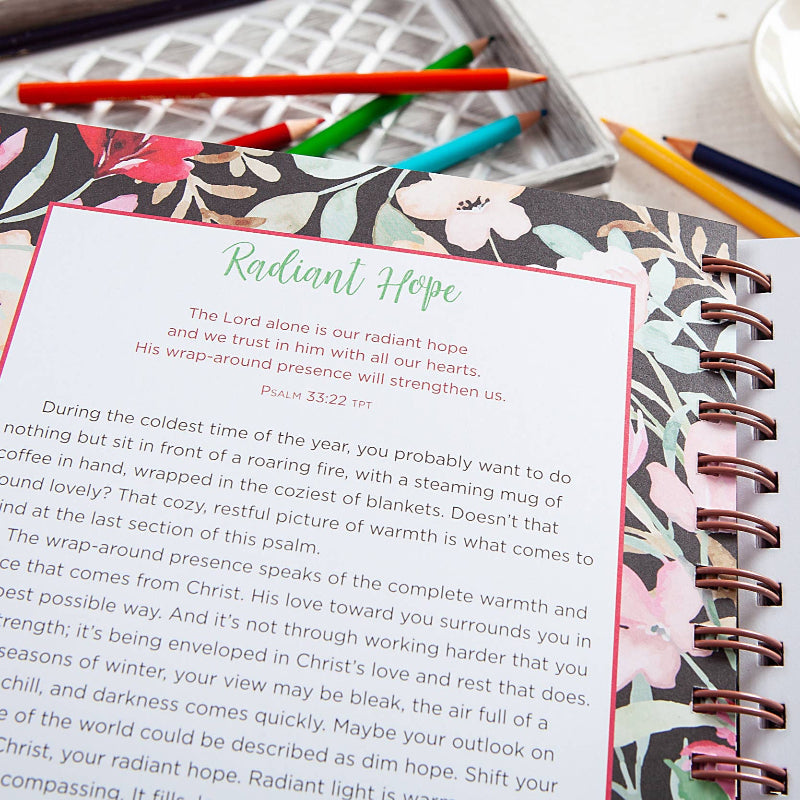 Radiant Hope
The Lord alone is our radiant hope
and we trust in him with all our hearts.
His wrap-around presence will strengthen us.
Psalm 33:22 TPT
During the coldest time of the year, you probably want to do
nothing but sit in front of a roaring fire, with a steaming mug of
coffee in hand, wrapped in the coziest of blankets. Doesn't that
ound lovely? That cozy, restful picture of warmth is what comes to
ind at the last section of this psalm.
The wrap-around presence speaks of the complete warmth and
ce that comes from Christ. His love toward you surrounds you in
best possible way. And it's not through working harder that you
trength; it's being enveloped in Christ's love and rest that does.
seasons of winter, your view may be bleak, the air full of a
chill, and darkness comes quickly. Maybe your outlook on
e of the world could be described as dim hope. Shift your
Christ, your radiant hope. Radiant light is warm
compassing. It fills